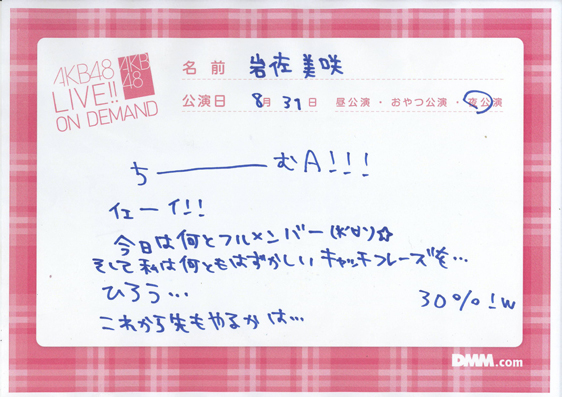 AKB48
LIVE!!
ON DEMAND
AKB
48
名前 岩佐美咲
公演日 8月 31日 昼公演・おやつ公演・夜公演
ち――むA!!!
イェーイ!!
今日は何とフルメンバー(*'∀')☆
そして私は何ともはずかしいキャッチフレーズを…
ひろう…
30%!w
これから先もやるかは…
DMM.com